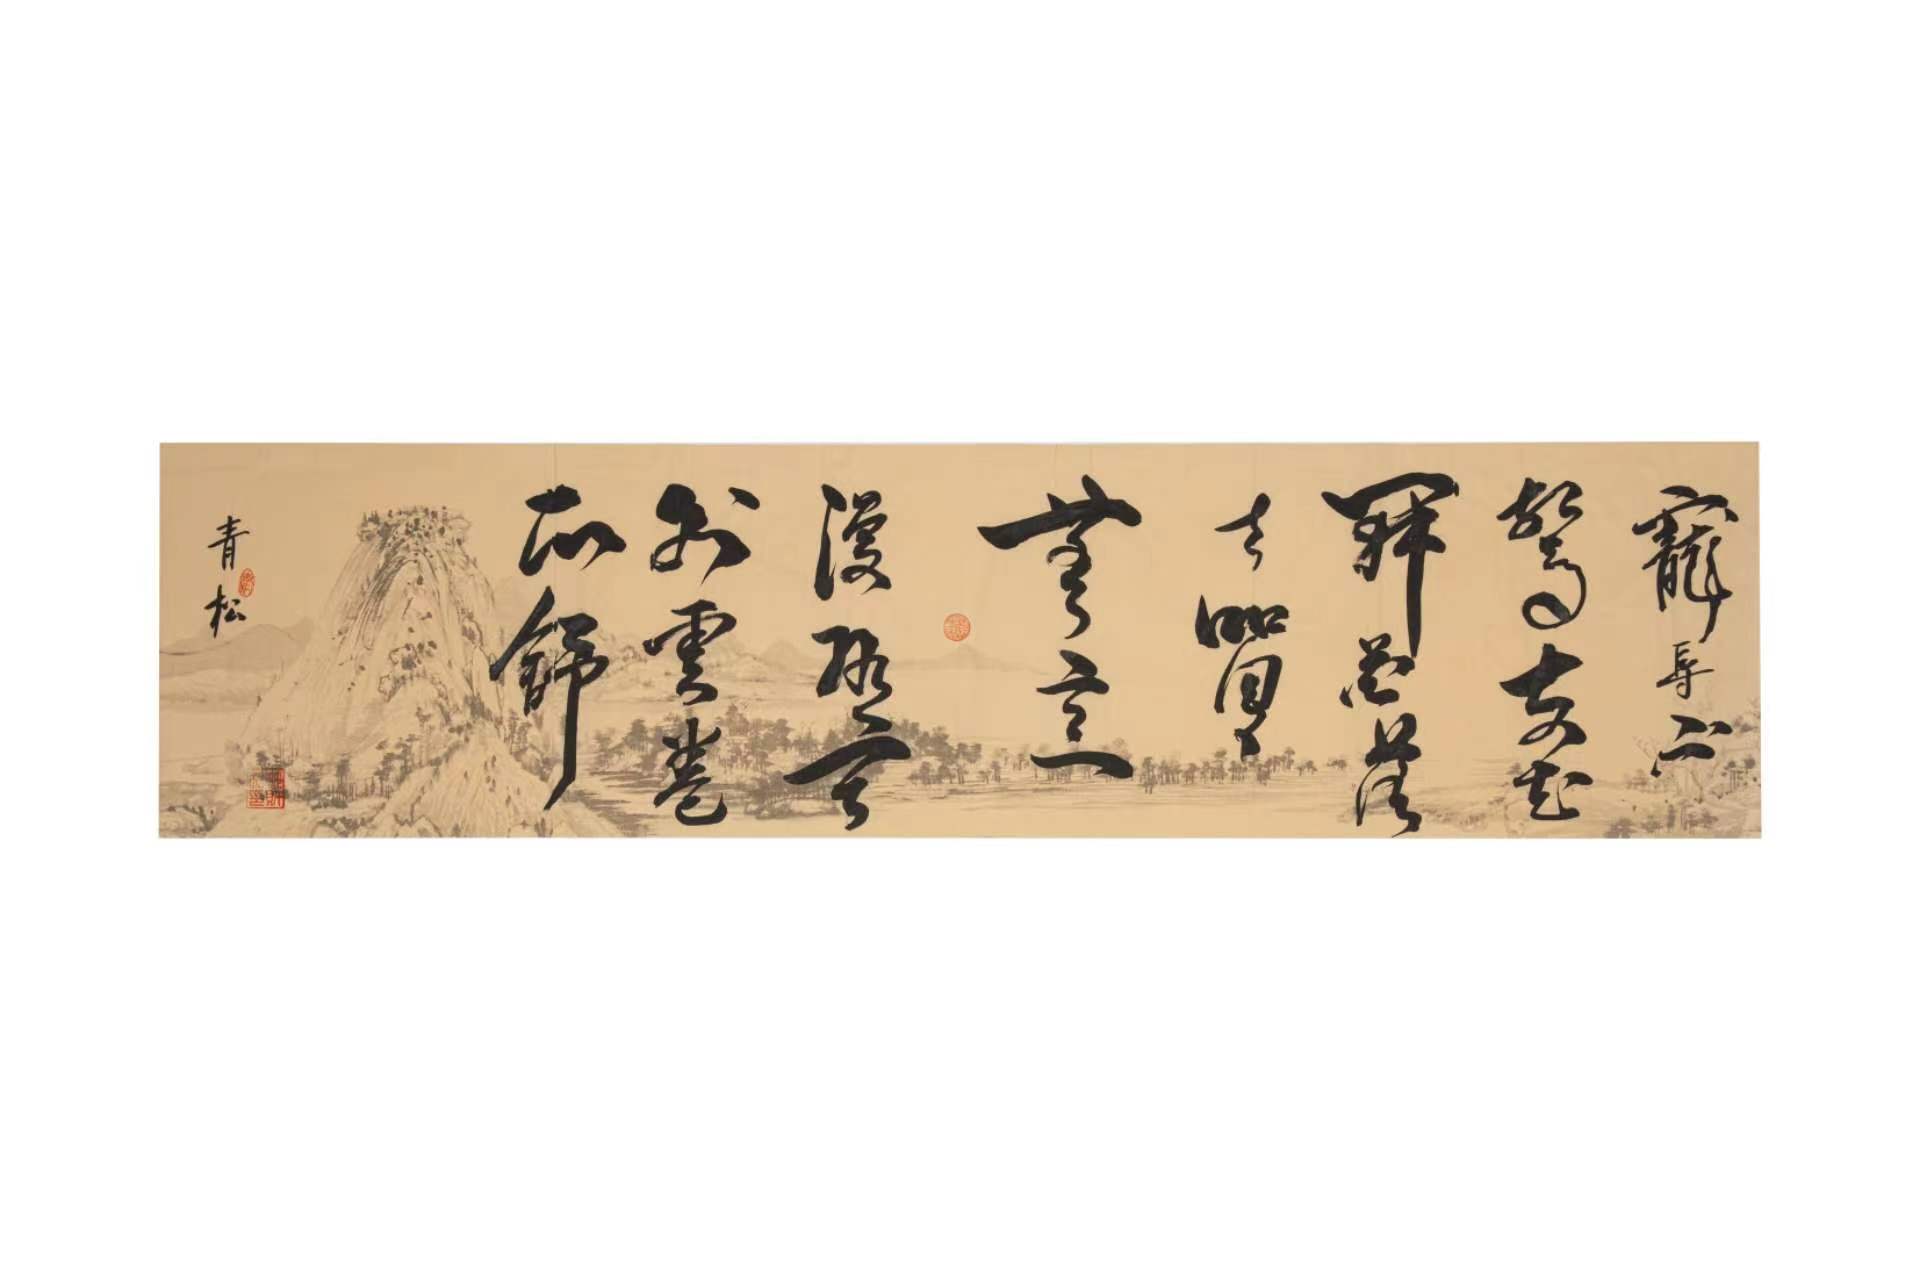 寵辱不
驚看花
開花落
去留
無意
漫隨天
外雲卷
雲舒
青松